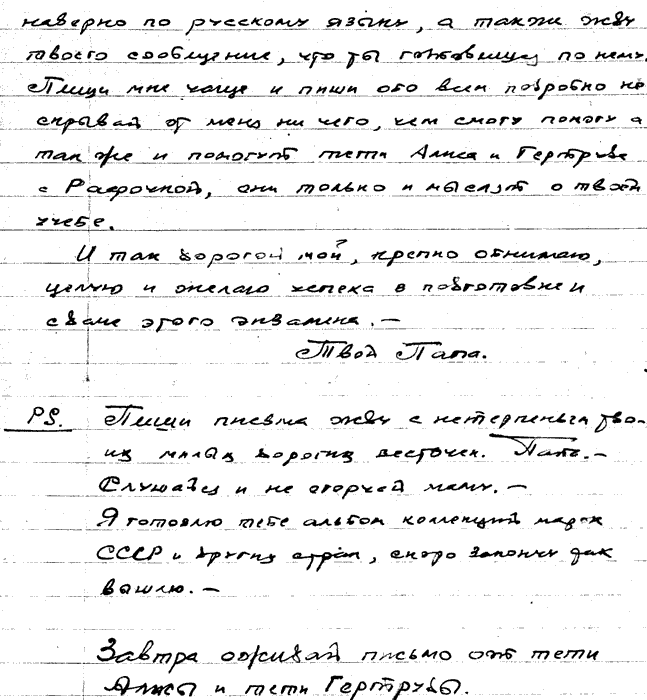 наверно по русскому языку, а также жду
твоего сообщение, что ты готовишся по нему.
Пиши мне чаще и пиши обо всем подробно не
скрывай от меня ни чего, чем смогу помогу а
так же и помогут тети Алиса и Гертруда
с Рафочкой, они только и мыслят о твоей
учебе.
И так дорогой мой, крепко обнимаю,
целую и желаю успеха в подготовке и
сдаче этого экзамена. —
Твой Папа.
PS. Пиши письма жду с нетерпеньем тво-
их милых дорогих весточек. Папа. —
Слушайся и не огорчай маму. —
Я готовлю тебе альбом коллекций марок
СССР и других стран, скоро закончу
вышлю. —
Завтра ожидай письмо от тети
Алисы и тети Гертруды.